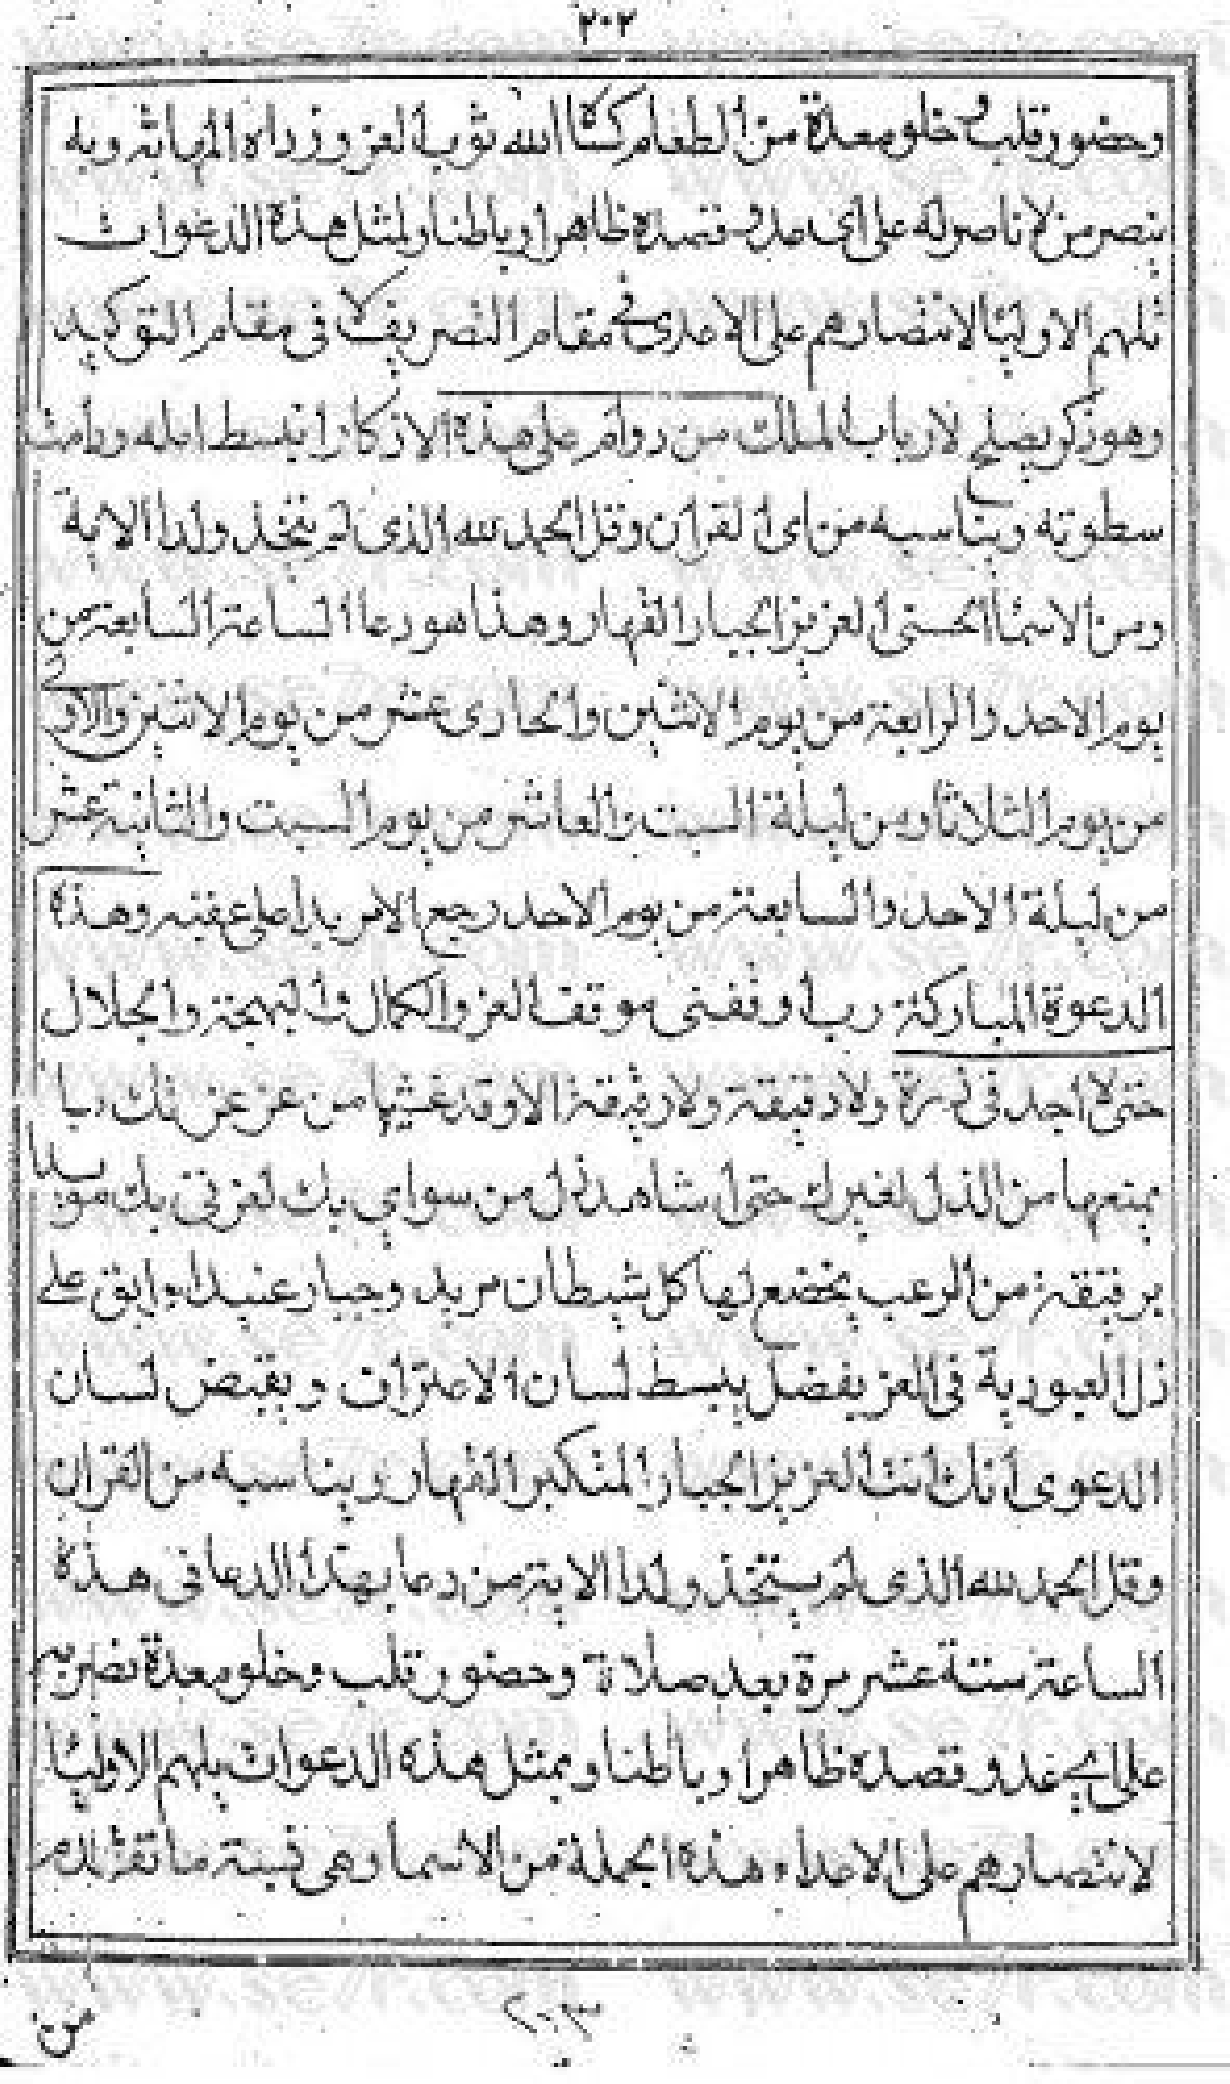 ٢٠٢
وحضور قلب وخلو معدة من الطعام كساه الله ثوب العز وزراه المهابة وبه
ينصر من لا ناصر له على اى عدو قصده ظاهرا وباطنا ولمثل هذه الدعوات
تلهم الاوليا لانتصارهم على الاعدى فى مقام التصريف لا فى مقام التوكيد
وهو ذكر يصلح لارباب الملك من دوام على هذه الاذكار انبسط امله ودامت
سطوته ويناسبه من اى القران وقل الحمد لله الذى لم يتخذ ولدا الاية
ومن الاسمأ الحسنى العزيز الجبار القهار وهذا هو دعا الساعة السابعة من
يوم الاحد والرابعة من يوم الاثنين والحادى عشر من يوم الاثنين والاولى
من يوم الثلاثا ومن ليلة السبت والعاشر من يوم السبت والثانية عشر
من ليلة الاحد والسابعة من يوم الاحد رجع الامر بدا على عقبه وهذه
الدعوة المباركة رب اوقفنى موقف العز والكمال البهجة والجلال
حتى لا اجد فى ذرة ولا دقيقة ولا رقيقة الا وقد غشيها من عز عزتك ربا
يمنعها من الذل لغيرك حتى اشاهد ذل من سواي بك لعزتى بك مويدا
برقيقة من الرعب يخضع لها كل شيطان مريد وجبار عنيد وابق على
ذل العبودية فى العز بفضل يبسط لسان الاعتراف ويقبض لسان
الدعوى انك انت العزيز الجبار المتكبر القهار ويناسبه من القران
وقل الحمد لله الذى لم يتخذ ولدا الاية من دعا بهذا الدعا فى هذه
الساعة ستة عشر مرة بعد صلاة وحضور قلب وخلو معدة نصر به
على اى عدو قصده ظاهرا وباطنا وبمثل هذه الدعوات يلهم الاوليا
لانتصارهم على الاعداء وهذه الجملة من الاسما وهى ما تقدم
من